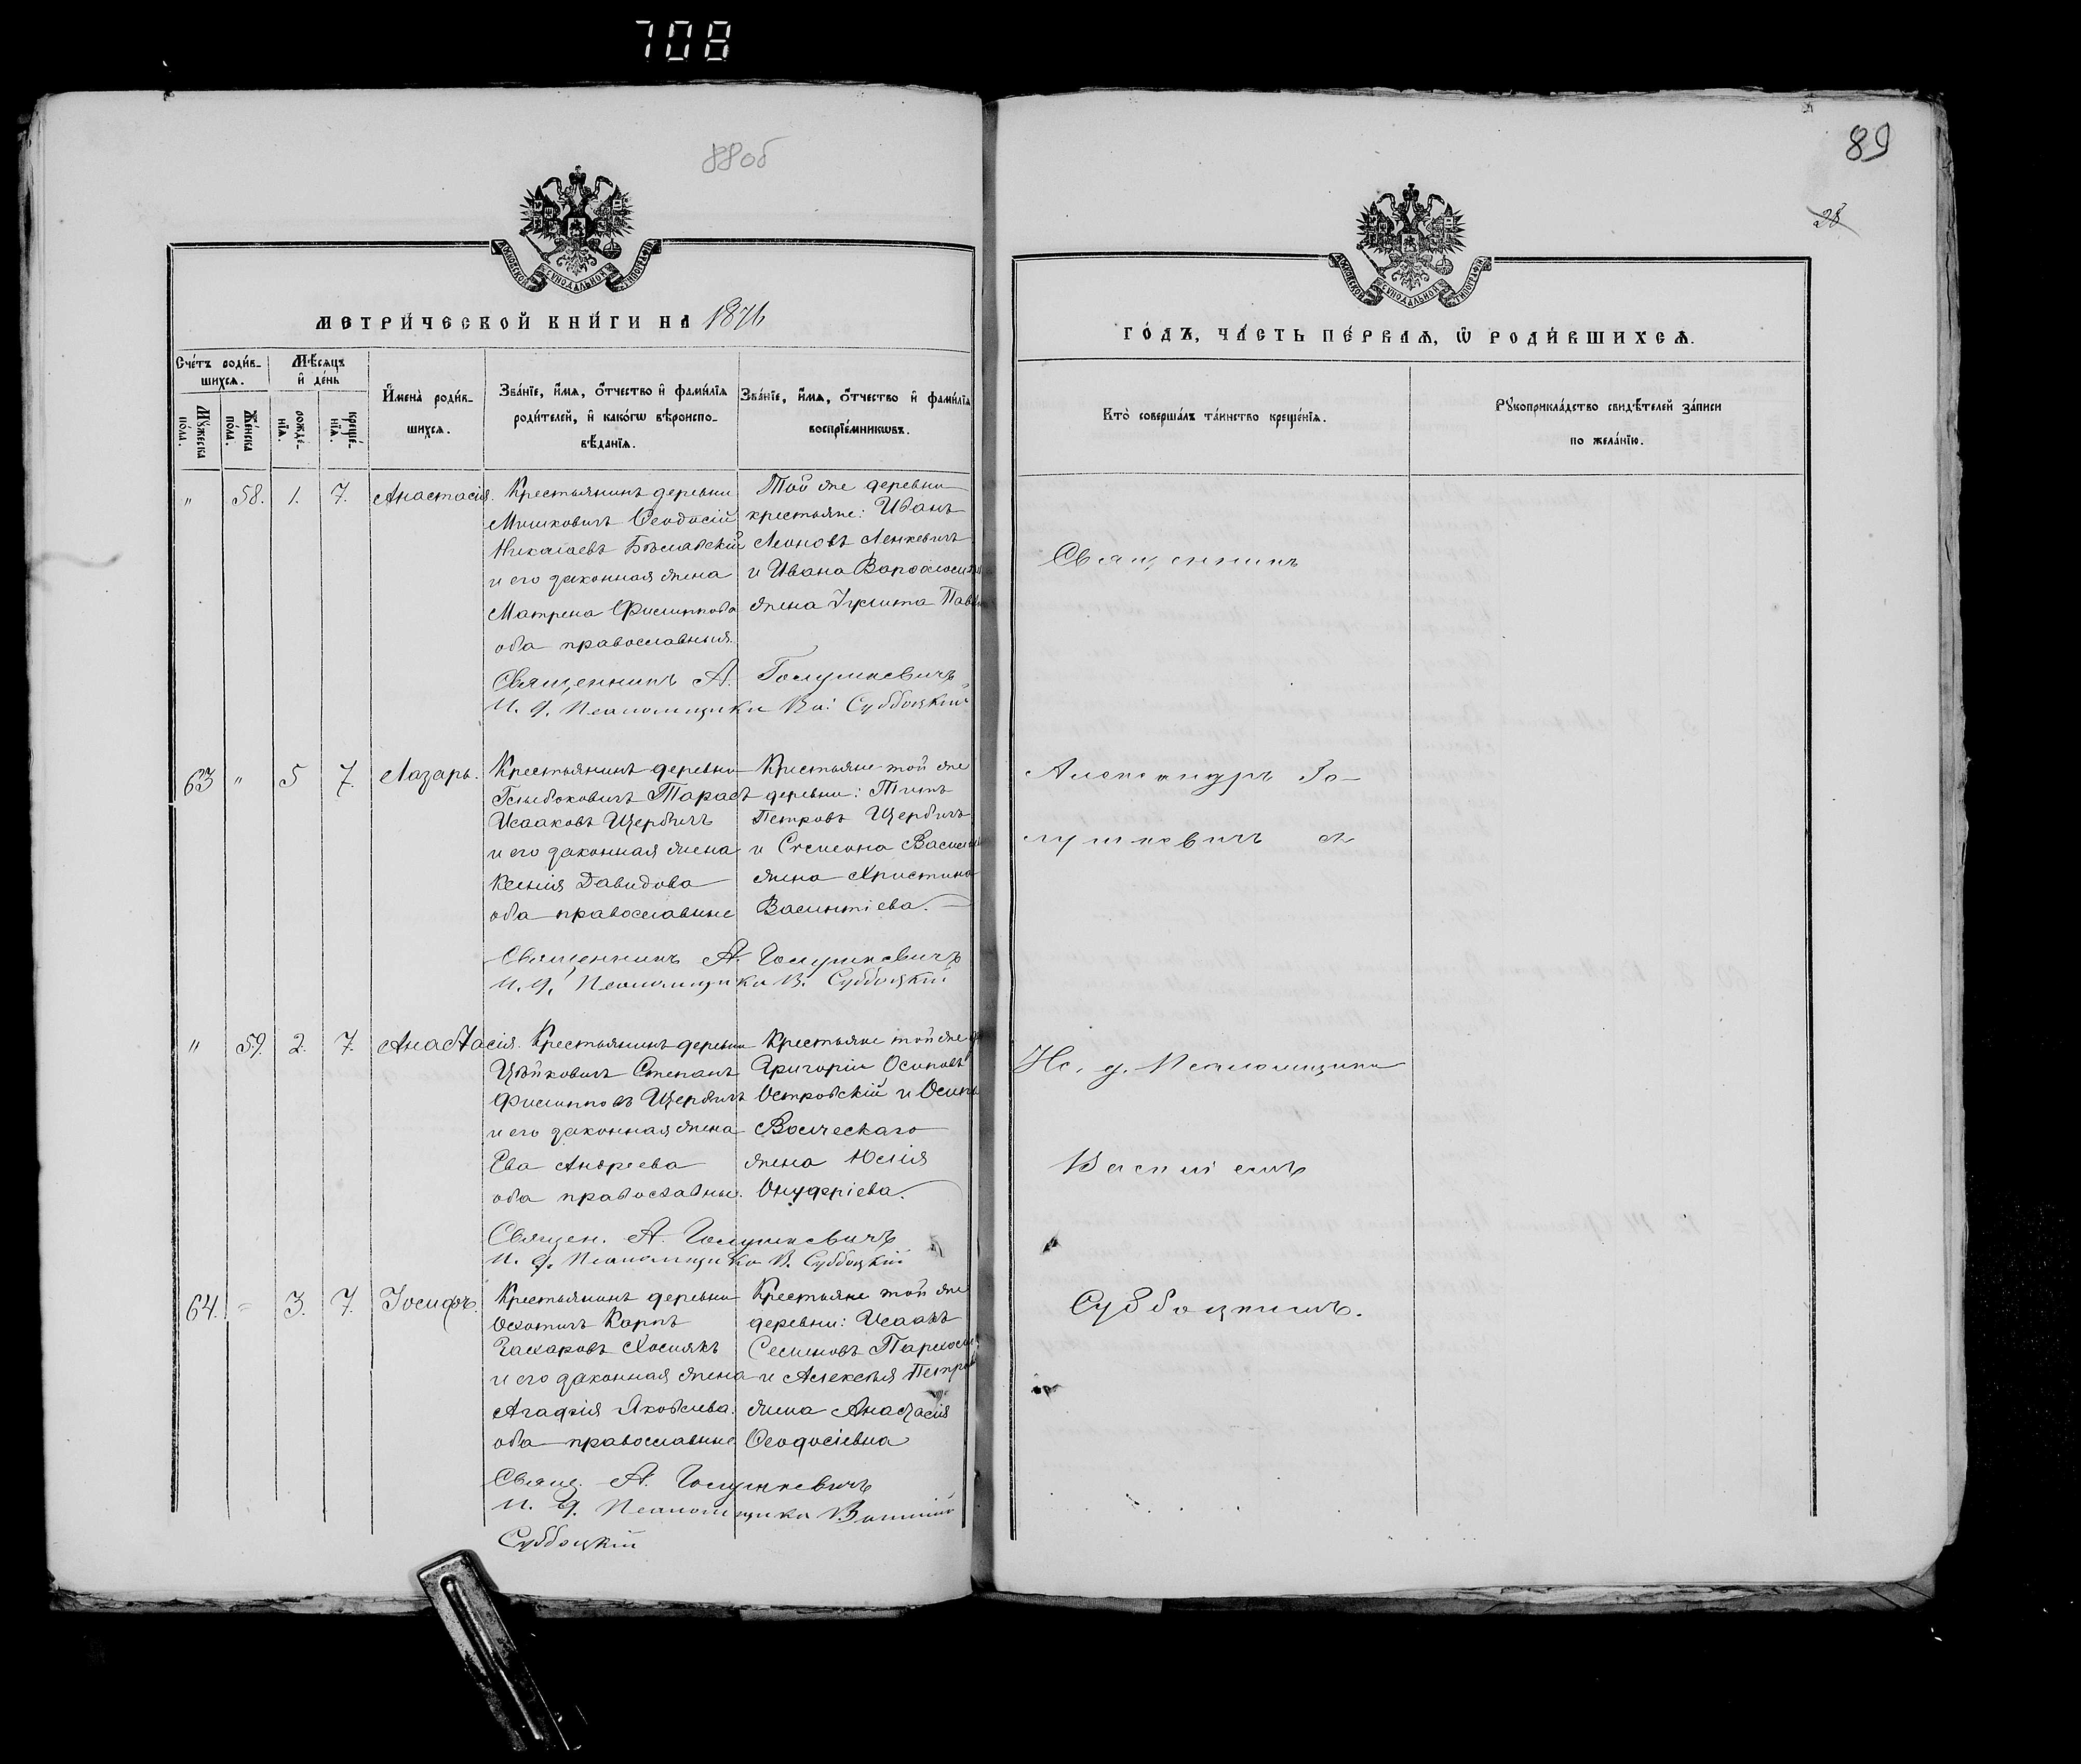 708
88об
МОСКОВСКОЙ СѴНОДАЛЬНОЙ ТИПОГРАФІИ
МЕТРИ́ЧЕСКОЙ КНИ́ГИ НА 1876
Сче́тъ роди́в-
шихсѧ.
Мѣ́сѧцъ
и҆ де́нь
Мꙋ́жеска
по́ла.
Же́нска
по́ла.
рожде́-
нїѧ.
креще́-
нїѧ.
И҆мена̀ роди́в-
шихсѧ.
Зва́нїе, и҆́мѧ, ѻ҆́тчество и҆ фами́лїѧ
роди́телей, и҆ како́гѡ вѣроиспо-
вѣ́данїѧ.
Зва́нїе, и҆́мѧ, ѻ҆́тчество и҆ фами́лїѧ
воспрїе́мникѡвъ.
" 58. 1. 7. Анастасія.
Крестьянинъ деревни
Мишковичъ Ѳеодосій
Николаевъ Бѣлавскій
и его законная жена
Матрена Филиппова
оба православныя.
Той же деревни
крестьяне: Иванъ
Леоновъ Ленкевичъ
и Ивана
жена Улита
Священникъ А. Голушкевичъ
И. д. Псаломщика Ва: Суббоцкій
63 " 5 7. Лазарь.
Крестьянинъ деревни
Глыбоковичъ Тарасъ
Исааковъ Щербичъ
и его законная жена
Ксенія Давидова
оба православные
Крестьяне той же
деревни: Титъ
Петровъ Щербичъ
и Симеона
жена Христина
Васильева.
Священникъ А. Голушкевичъ
И. д. Псаломщика В. Суббоцкій
" 59. 2. 7. Анастасія.
Крестьянинъ деревни
Цѣйковичъ Степанъ
Филипповъ Щербичъ
и его законная жена
Ева Андреева
оба православны.
Крестьяне той же
Григорій Осиповъ
Островскій и Осипа
жена Юлія
Онуфріева.
Священ. А. Голушкевичъ
И. д. Псаломщика В. Суббоцкій
64. = 3. 7. Іосифъ.
Крестьянинъ деревни
Осотичъ Карпъ
Захаровъ Хоснякъ
и его законная жена
Агафія Яковлева.
оба православные
Крестьяне той же
деревни: Исаакъ
Семеновъ
и Алексѣя
жена Анастасія
Ѳеодосіевна
Свящ. А. Голушкевичъ
И. д. Псаломщика Василій
Суббоцкій
89
28
МОСКОВСКОЙ СѴНОДАЛЬНОЙ ТИПОГРАФІИ
ГО́ДЪ, ЧА́СТЬ ПЕ́РВАѦ, Ѽ РОДИ́ВШИХСѦ.
Кто̀ соверша́лъ та́инство креще́нїѧ.
Рꙋкоприкла́дство свидѣ́телей за́писи
по жела́нїю.
Священникъ
Александръ Го-
лушкевичъ съ
Ис. д. Псаломщика
Василіемъ
Суббоцкимъ.